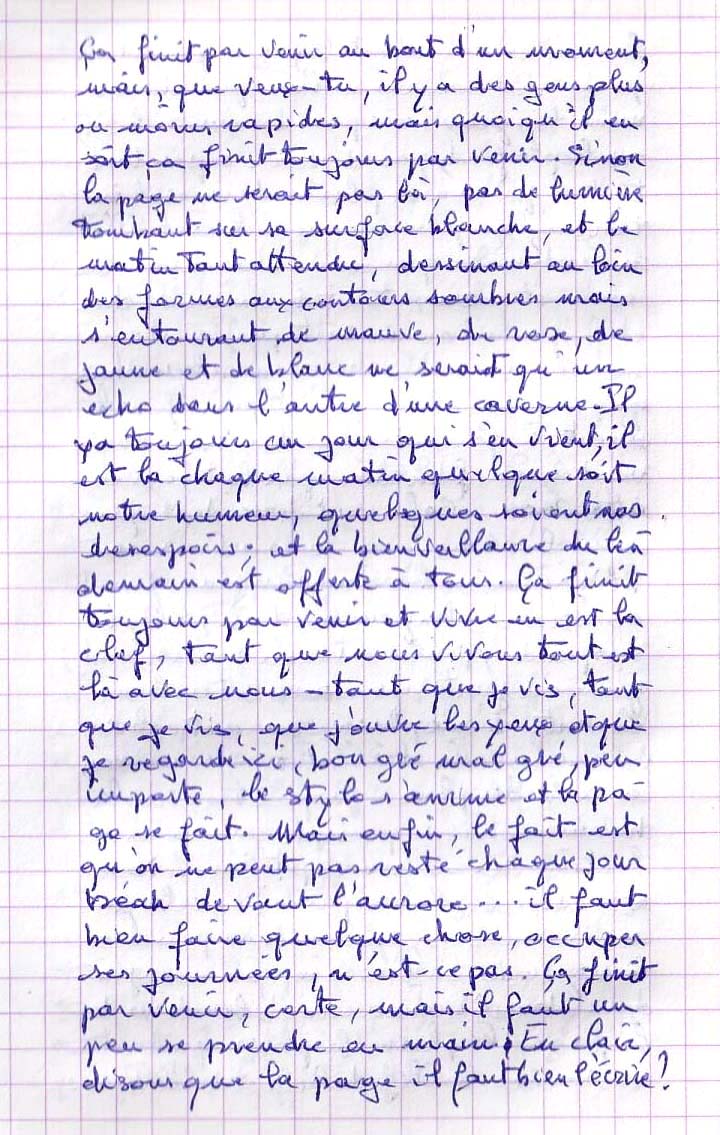 Ça finit par venir au bout d'un moment,
mais, que veux-tu, il y a des gens plus
ou moins rapides, mais quoiqu'il en
soit ça finit toujours par venir. Sinon
la page ne serait pas là, pas de lumière
tombant sur sa surface blanche, et le
matin tant attendu, dessinant au loin
des formes aux contours sombres mais
s'entourant de mauve, de rose, de
jaune et de blanc ne serait qu'un
echo dans l'antre d'une caverne. Il
y a toujours un jour qui s'en vient, il
est là chaque matin quelque soit
notre humeur, quelques soient nos
desespoirs ; et la bienveillance du lien
demain est offerte à tous. Ça finit
toujours par venir et vivre en est la
clef, tant que nous vivons tout est
là avec nous - tant que je vis, tant
que je vis, que j'ouvre les yeux et que
je regarde ici, bon gré mal gré, peu
importe, le stylo s'anime et la pa-
ge se fait. Mais enfin, le fait est
qu'on ne peut pas resté chaque jour
béah devant l'aurore... il faut
bien faire quelque chose, occuper
ses journées, n'est-ce pas. Ça finit
par venir, certe, mais il faut un
peu se prendre en main. En clair,
disons que la page il faut bien l'écrire ?